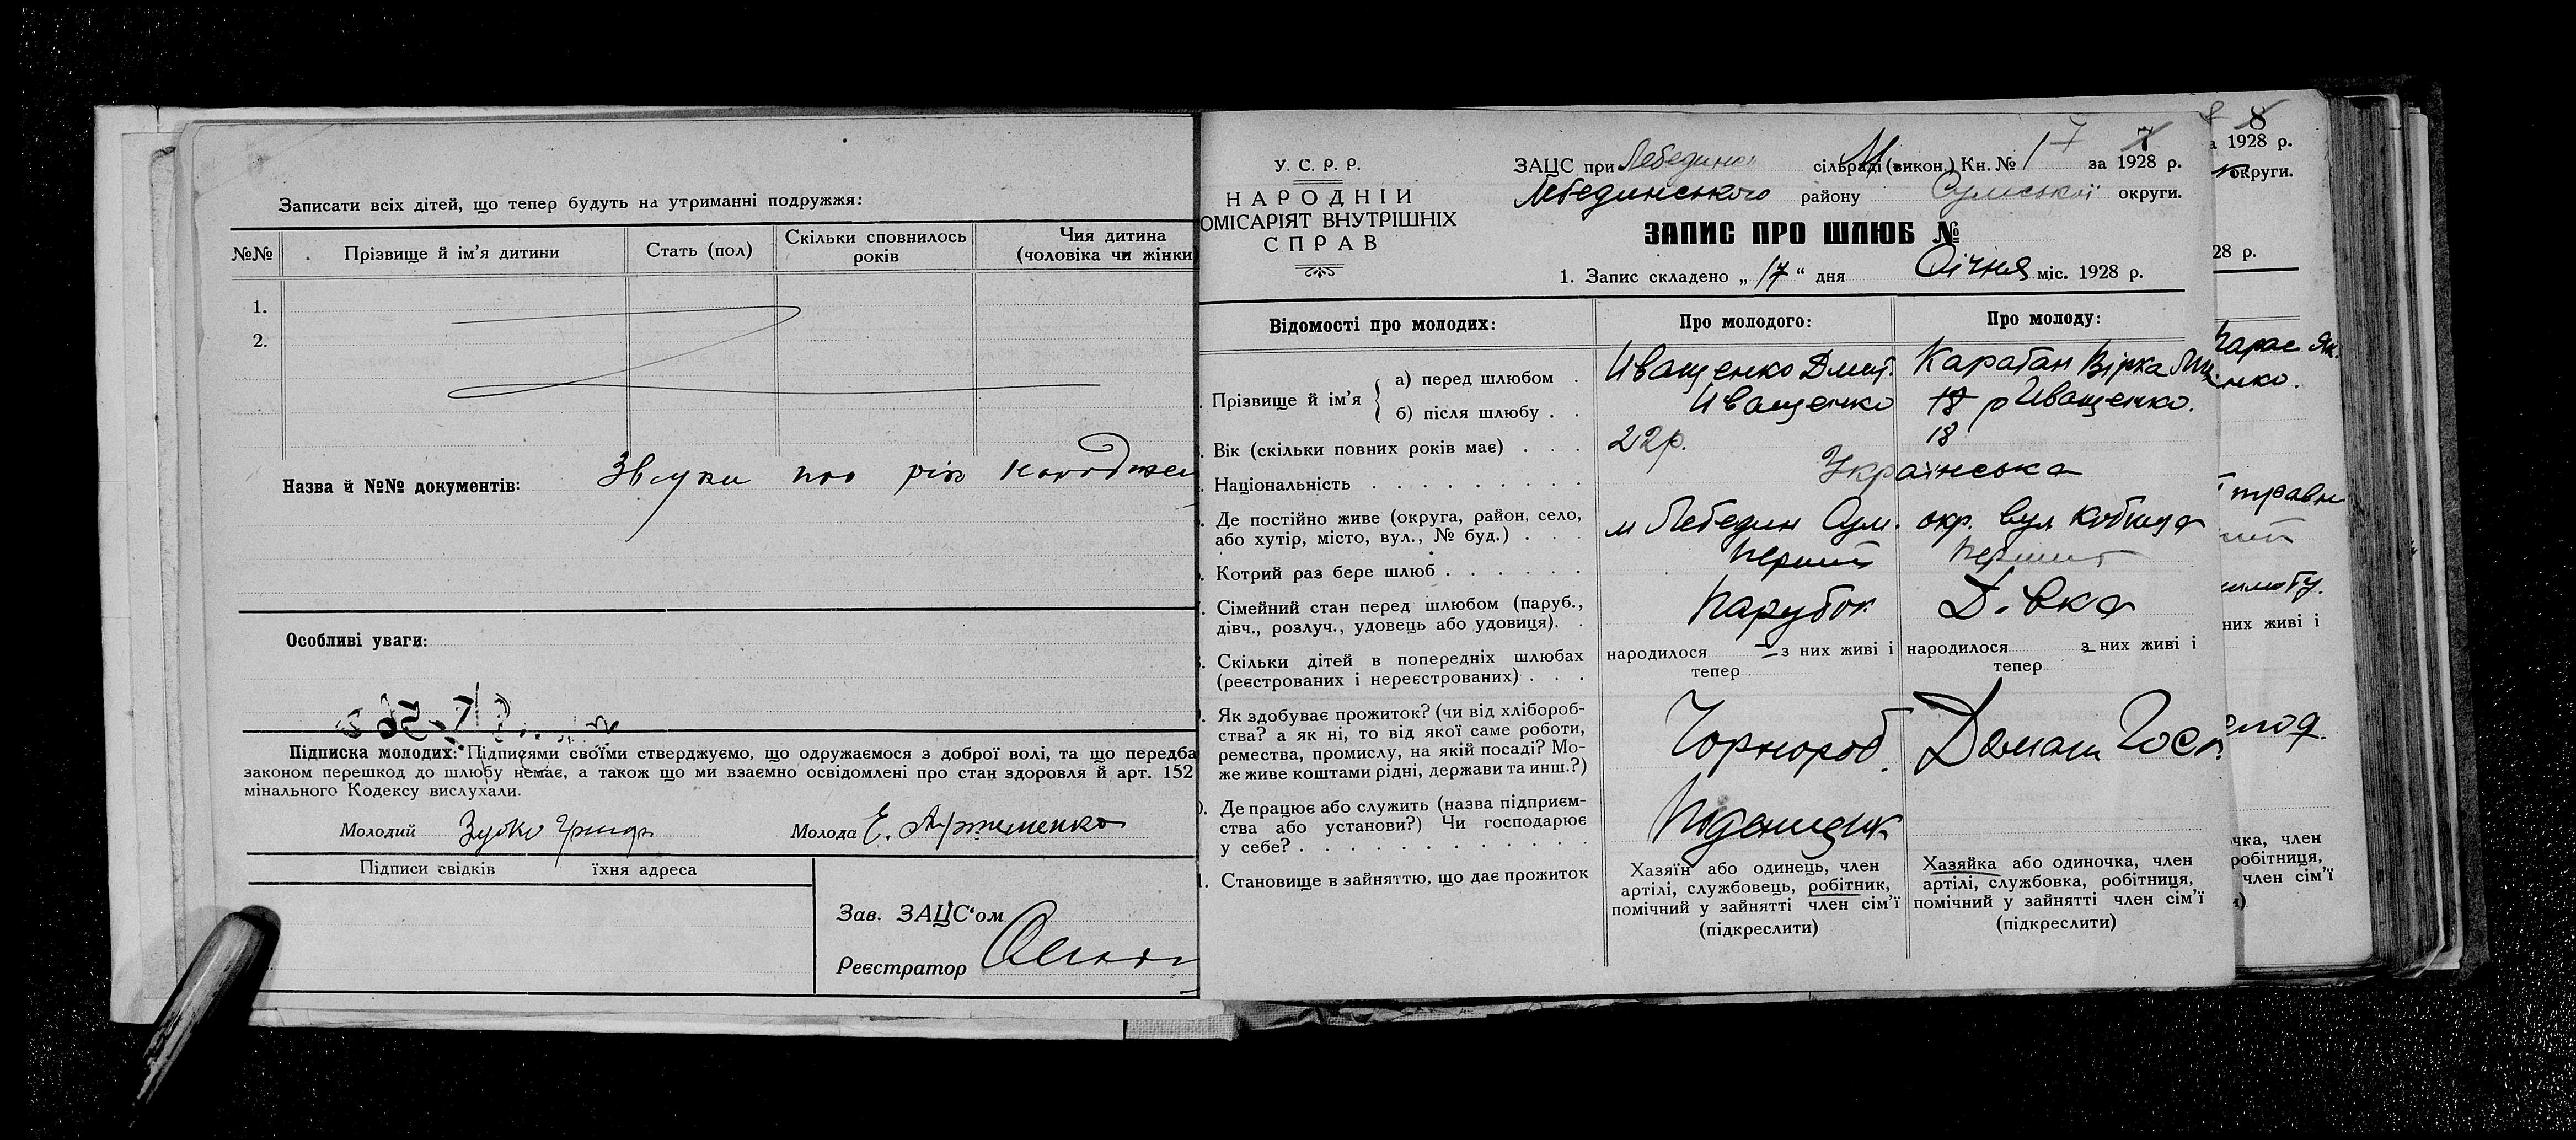 Записати всіх дітей, що тепер будуть на утриманні подружжя:
№№ Прізвище й ім'я дитини Стать (пол) Скільки сповнилось років Чия дитина (чоловіка чи жінки
1.
2.
Назва й №№ документів: про рік
Особливі уваги:
Підписка молодих: Підписями своїми стверджуємо, що одружаємося з доброї волі, та що передба
законом перешкод до шлюбу немає, а також що ми взаємно освідомлені про стан здоровля й арт. 152
мінального Кодексу вислухали.
Молодий Зубко Молода Е. Артеменко
Підписи свідків їхня адреса
Зав. ЗАЦС'ом
Реєстратор
У. С. Р. Р.
НАРОДНІЙ
ОМІСАРІЯТ ВНУТРІШНІХ
СПРАВ
ЗАЦС при сільраді (викон.) Кн. № 1 7 7 за 1928 р.
Лебединського району Сумської округи.
ЗАПИС ПРО ШЛЮБ №
1. Запис складено „ 17 “ дня Січня міс. 1928 р.
Відомості про молодих: Про молодого: Про молоду:
Прізвище й ім'я
а) перед шлюбом . Иващенко Дмит. Карабан Вірка
б) після шлюбу . . Иващенко 18 р Иващенко.
Вік (скільки повних років має) . . . 22р. 18
Національність . . . . . . . . . Українська
Де постійно живе (округа, район, село,
або хутір, місто, вул., № буд.) . . . м Лебедин Сум. окр. вул
Котрий раз бере шлюб . . . . . . Перший Перший
Сімейний стан перед шлюбом (паруб.,
дівч., розлуч., удовець або удовиця). . Парубок Дівка
Скільки дітей в попередніх шлюбах
(реєстрованих і нереєстрованих) . . .
народилося — з них живі і
тепер
народилося з них живі і
тепер
Як здобуває прожиток? (чи від хлібороб-
ства? а як ні, то від якої саме роботи,
ремества, промислу, на якій посаді? Мо-
же живе коштами рідні, держави та инш.?)
Чорнороб. Домаш Госп.
Де працює або служить (назва підприєм-
ства або установи?) Чи господарює
у себе? . . . . . . . . . . . .
Поденщик
Становище в зайняттю, що дає прожиток
Хазяїн або одинець, член
артілі, службовець, робітник,
помічний у зайнятті член сім'ї
(підкреслити)
Хазяйка або одиночка, член
артілі, службовка, робітниця,
помічний у зайнятті член сім'ї
(підкреслити)
8
1928 р.
округи.
28 р.
нко.
них живі і
чка, член
робітниця,
член сім'ї